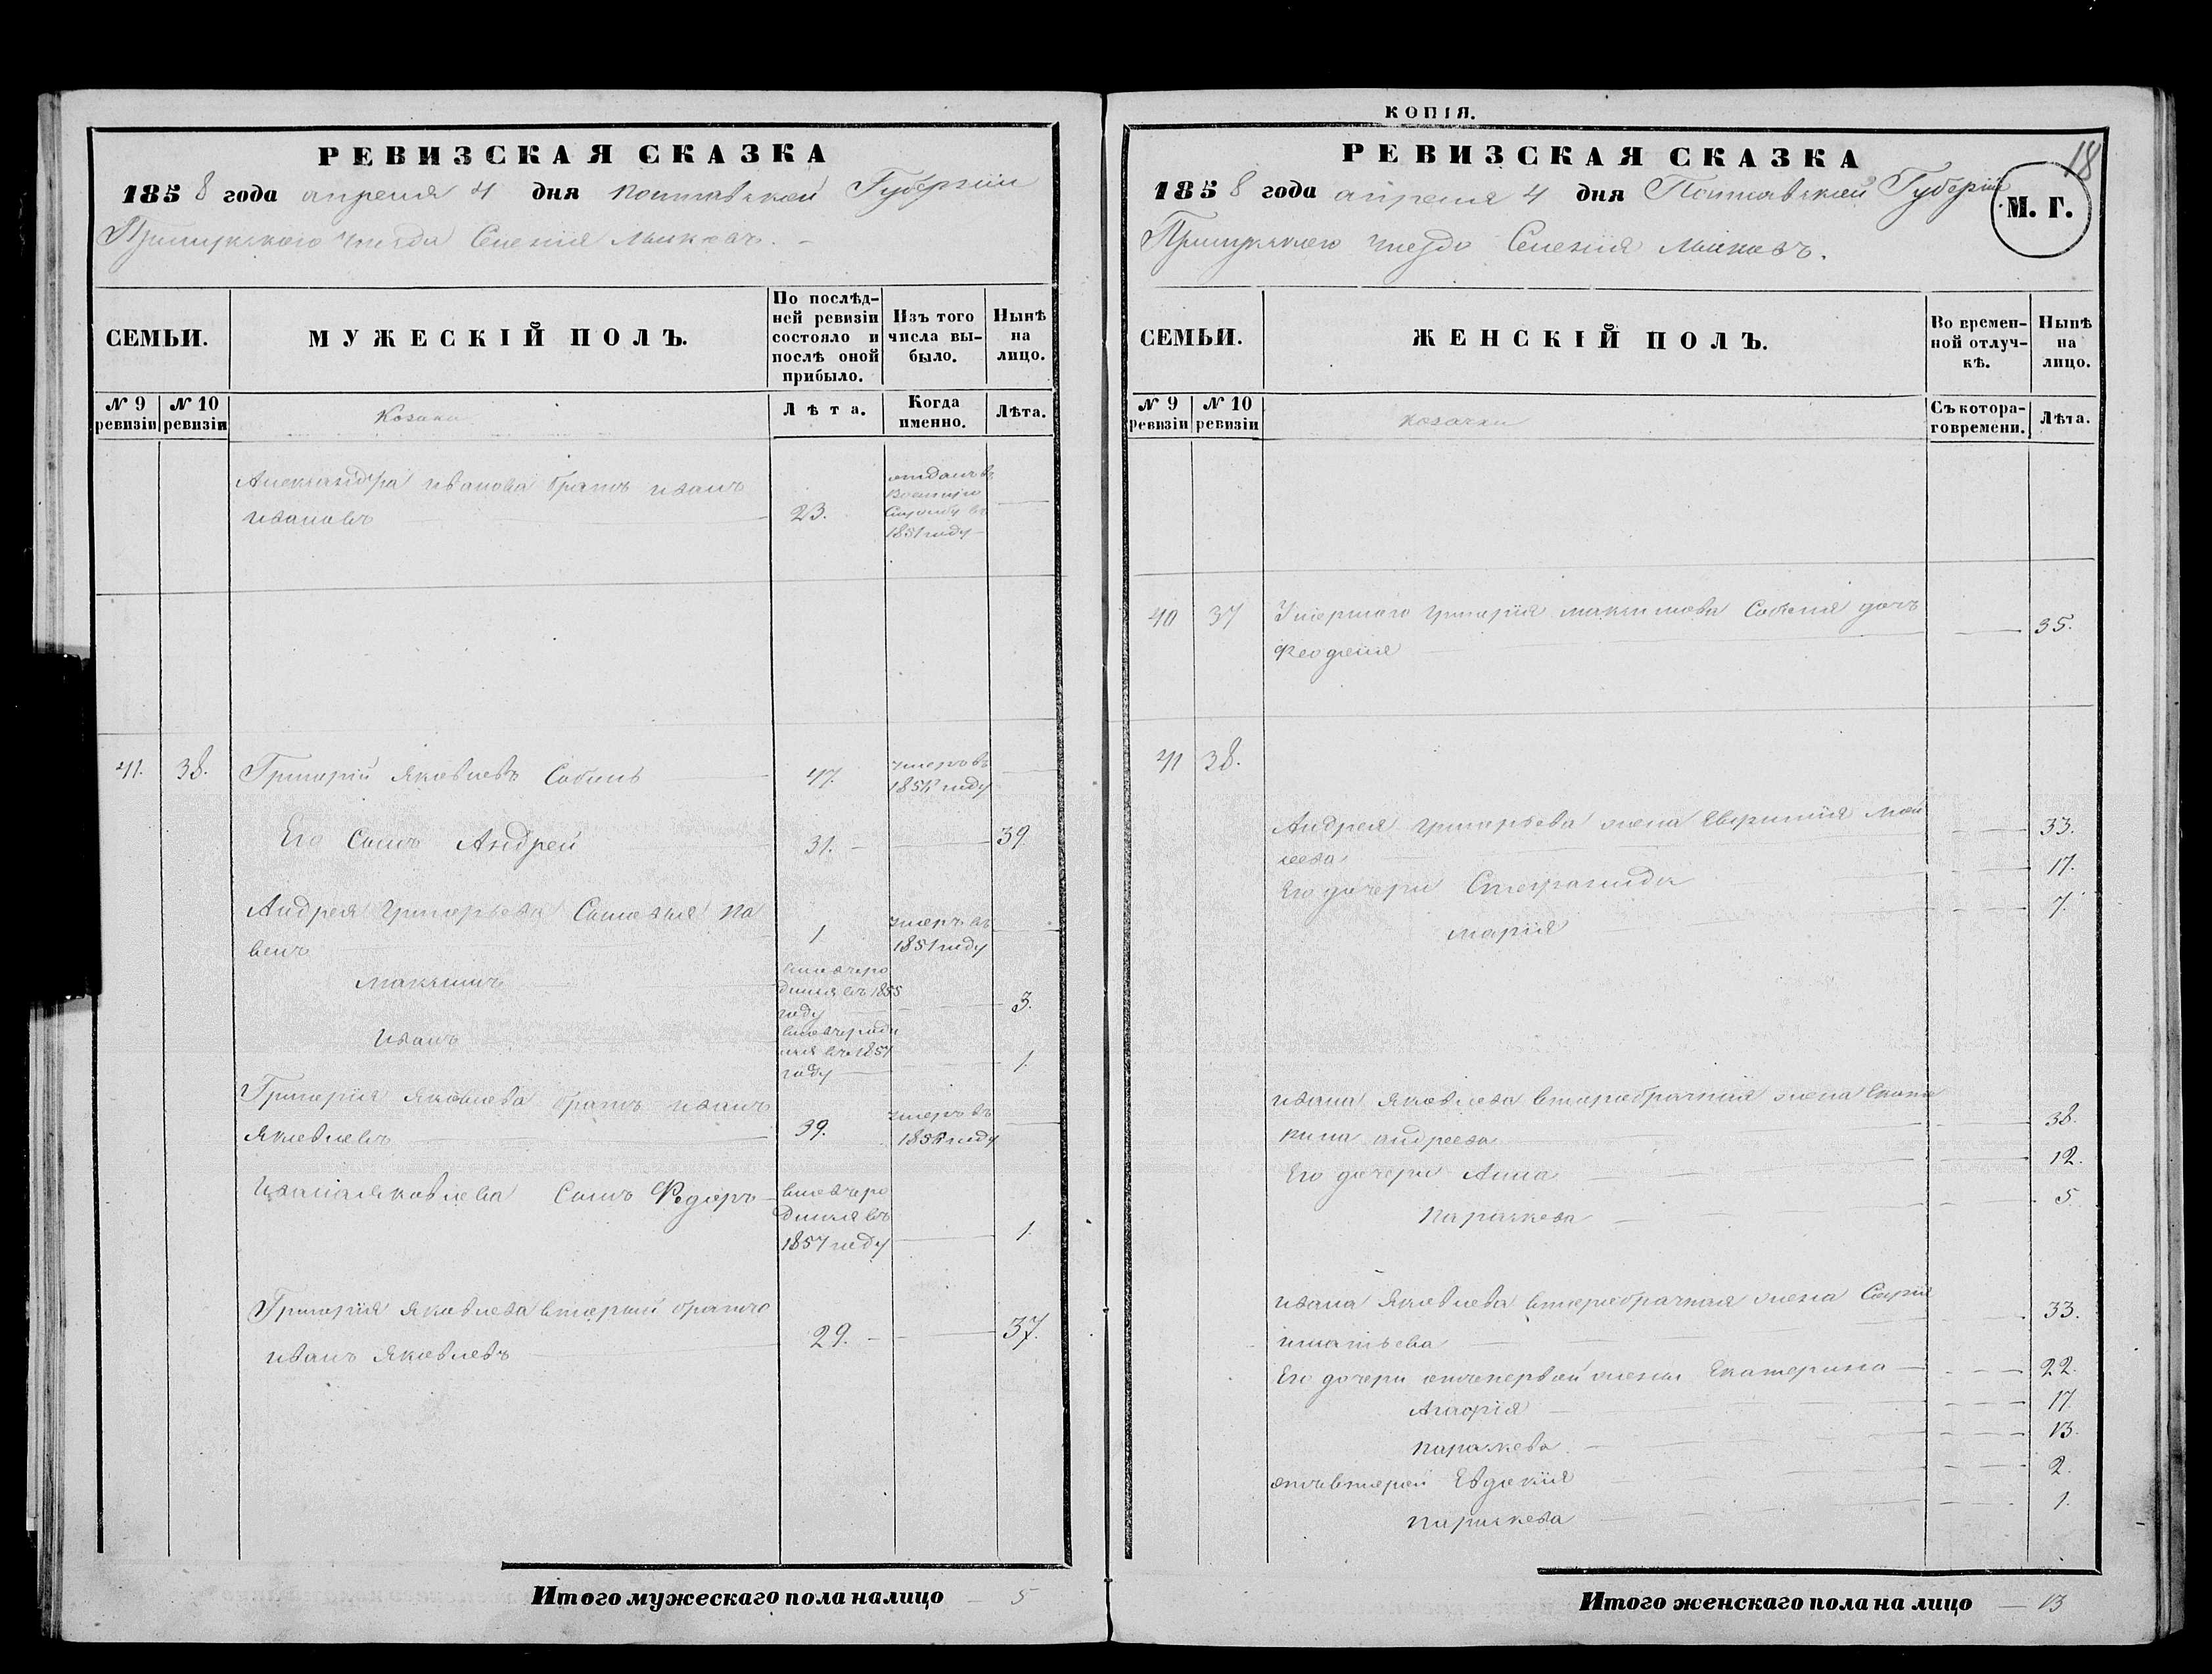 РЕВИЗСКАЯ СКАЗКА
1858 года апреля 4 дня Полтавской Губернии
Прилукского уезда Селения Мынковъ.
СЕМЬИ.
МУЖЕСКІЙ ПОЛЪ.
По послѣд-
ней ревизіи
состояло и
послѣ оной
прибыло.
Изъ того
числа вы-
было.
Нынѣ
на
лицо.
№ 9
ревизіи
№ 10
ревизіи
Козаки
Лѣта.
Когда
именно.
Лѣта.
Александра Иванова братъ Иванъ
Ивановъ 23.
отданъ въ
Военную
Службу въ
1851 году
41. 38. Григорій Яковлевъ 47.
умеръ въ
году
Его Сынъ Андрей 31. 39.
Андрея Григорьева Сыновья Па
велъ 1
умеръ въ
1851 году
Максимъ
вновь ро
дился въ 1855
году 3.
Иванъ
вновь роди
лся въ 1857
году 1.
Григорія Яковлева братъ Иванъ
Яковлевъ 39.
умеръ въ
году
Ивана Яковлева Сынъ Федоръ
вновь ро
дился въ
1857 году 1.
Григорія Яковлева вторый братъ
Иванъ Яковлевъ 29. 37.
Итого мужескаго пола налицо 5
КОПІЯ.
РЕВИЗСКАЯ СКАЗКА
18
1858 года апреля 4 дня Полтавской Губерніи
М. Г.
Прилукского уезда Селенія Мынковъ.
СЕМЬИ.
ЖЕНСКІЙ ПОЛЪ.
Во времен-
ной отлуч-
кѣ.
Нынѣ
на
лицо.
№ 9
ревизіи
№ 10
ревизіи
Козачки
Съ котора-
го времени.
Лѣта.
40 37 Умершого Григорія Максимова дочь
Феодосія 35.
41 38.
Андрея Григорьева жена Мои
сеева 33.
Его дочери Степанида 17.
Марія 7.
Ивана Яковлева второбрачная жена Екате
рина Андреева 38.
Его дочери Анна 12.
Параскева 5.
Ивана Яковлева второбрачная жена
Игнатьева 33.
Его дочери отъ первой жены Екатерина 22.
17.
Параскева 13.
отъ второй Евдокія 2.
Параскева 1.
Итого женскаго пола на лицо 13